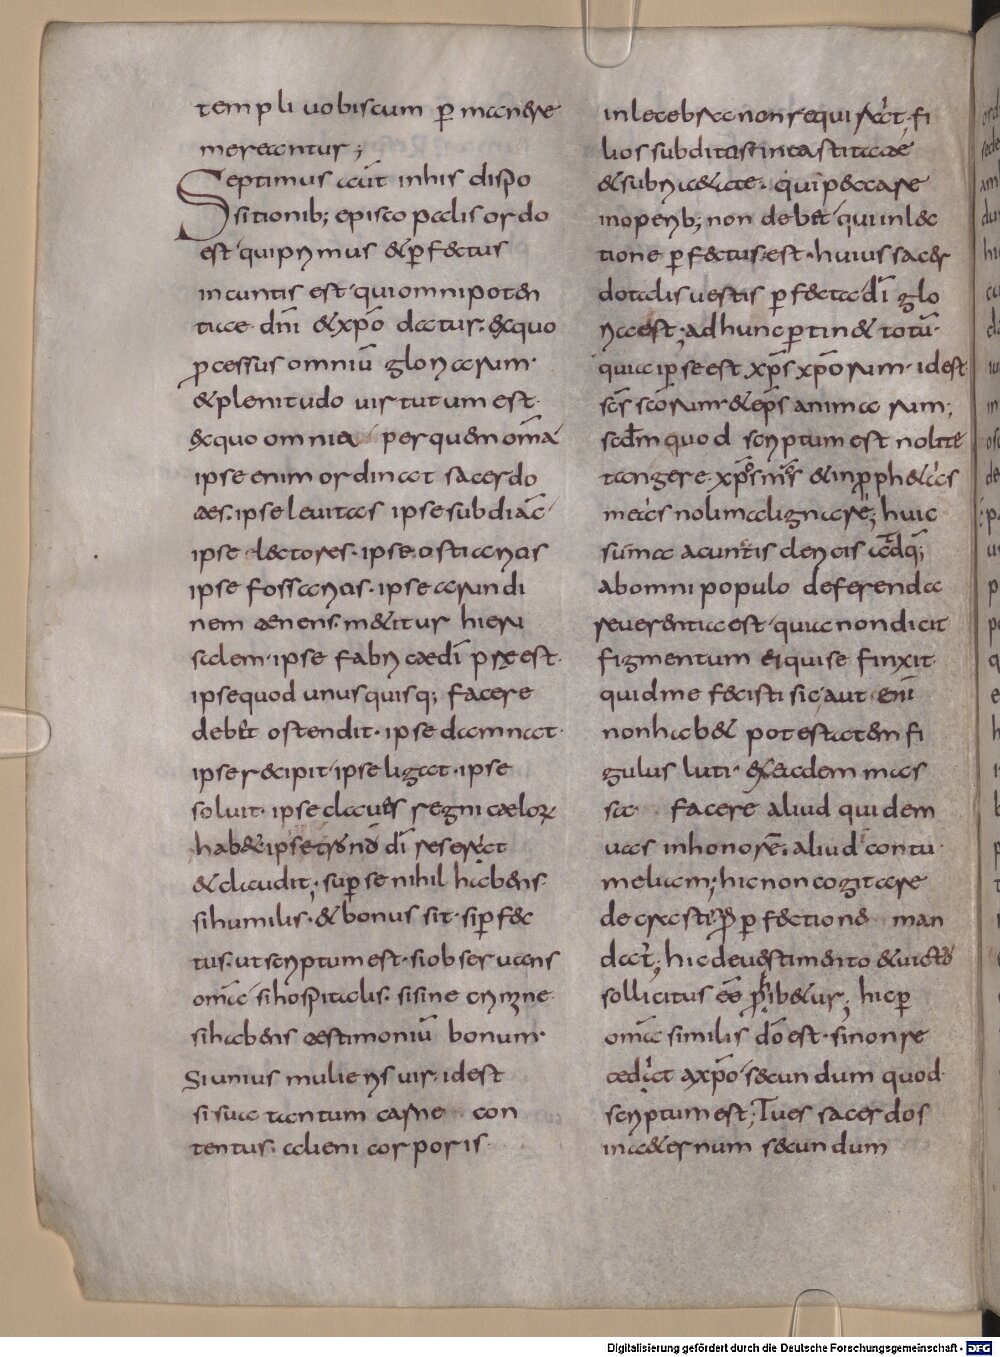 templi uobiscum p̲ manere
mereantur;
Septimus aut̄ inhis dispo
sitionib; episcopalis ordo
est qui primus & p̲fectus
incunctis est qui omnipoten
tiae dn̄i & xp̄o datur. exquo
p̲cessus omniū gloriarum.
& plenitudo uirtutum est.
exquo omnia per quem om̄a
ipse enim ordinat sacerdo
tes. ipse leuitas ipse subdiac̄
ipse lectores. ipse ostiarios
ipse fossarios. ipse arundi
nem tenens. m&itur hieru
salem. ipse fabricae dī preest.
ipse quod unus quisq; facere
deb&t ostendit. ipse damnat.
ipse recipit ipse ligat. ipse
soluit. ipse claues regni caeloꝝ
hab& ipse dī reserat
& claudit; sup̲ se nihil habens
si humilis. & bonus sit. si p̲fec
tus. ut scriptum est. si obseruans
om̄ia si hospitalis. si sine crimine
si habens testimoniū bonum.
Si unius mulieris uir. id est
si sua tantum carne con
tentus. alieni corporis
inlecebra non requirat. fi
lios subditos in castitate
& subri&ate. qui peccare
in operib; non deb&t qui in lec
tione p̲fectus est. huius sacer
dotalis uestis p̲fecta dī glo
ria est; ad hunc p̲tin& totū.
quia ipse est xp̄s xp̄orum. id est
sc̄s sc̄orum & ep̄s animarum;
scd̄m quod scriptum est nolite
tangere xp̄os m̄os & in p̲ph&as
meos noli malignare; huic
summa acunctis clericis
ab omni populo deferenda
reuerentia est. quia non dicit
figmentum ei qui se finxit.
quid me fecisti sic aut enī
non hab& potestatem fi
gulus luti. ex eadem mas
sa facere aliud quidem
uas in honorē. aliud contu
meliam; hic non cogitare
de crasti p̲fectione man
dat; hic de uestimento & uictu
sollicitus eē p̲hib&ur; hic p̲
om̄ia similis dō est. si non re
cedat a xp̄o secundum quod
scriptum est; Tu es sacerdos
in a&ernum secundum
Digitalisierung gefördert durch die Deutsche Forschungsgemeinschaft - DFG